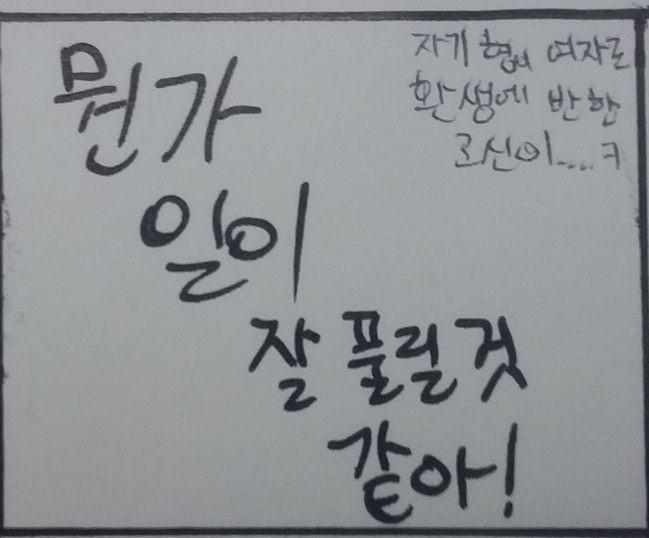 뭔가
일이
잘 풀릴 것
같아!
자기 형의 여자로
환생에 반한
고신이....ㅋ